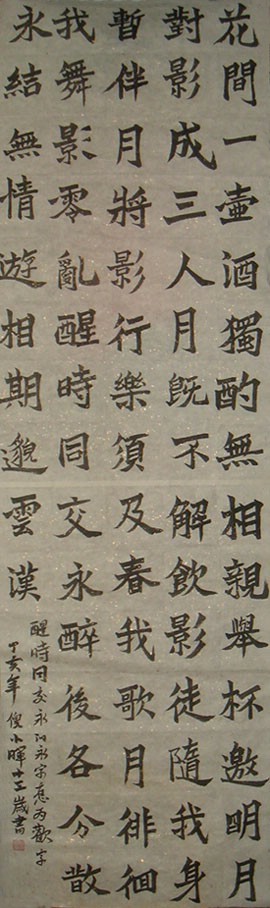 花間一壺酒獨酌無相親舉杯邀明月
對影成三人月既不解飲影徒隨我身
暫伴月將影行樂須及春我歌月徘徊
我舞影零亂醒時同交永醉後各分散
永結無情遊相期邈雲漢
醒時同交永永字應為歡字
丁亥年 小暉歲書